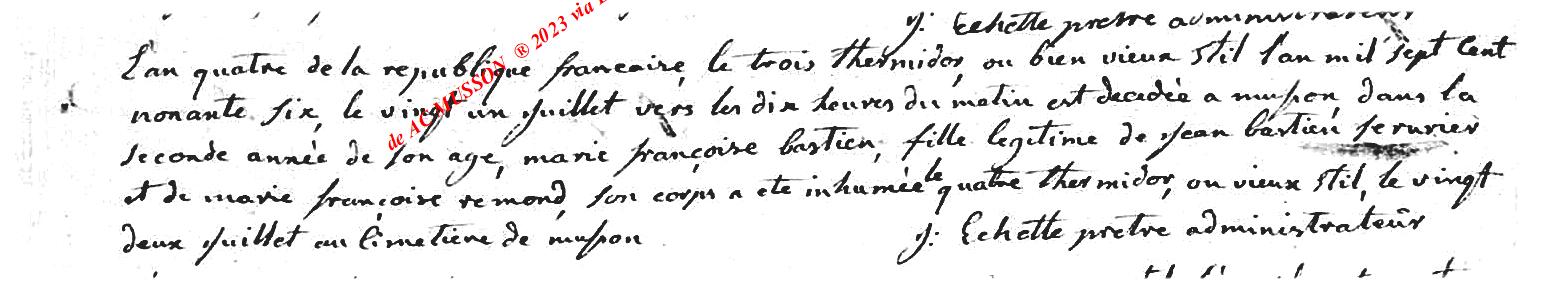 J: Echette pretre administrateur
L'an quatre de la republique francaise, le trois thermidor, ou bien vieux stil l'an mil sept cent
nonante six, le vingt un juillet vers les dix heures du matin est decedée a musson, dans la
seconde année de son age, marie françoise bastien, fille legitime de jean bastien serurier
et de marie françoise remond, son corps a ete inhumée le quatre thermidor, ou vieux stil, le vingt
deux juillet au cimetiere de musson
J: Echette pretre administrateûr
de AC MUSSON ® 2023 via